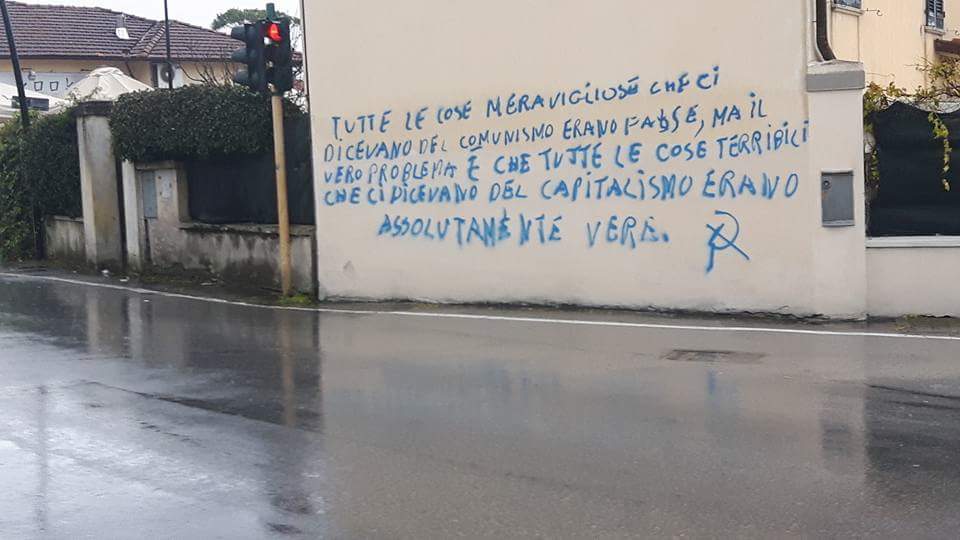 TUTTE LE COSE MERAVIGLIOSE CHE CI
DICEVANO DEL COMUNISMO ERANO FALSE, MA IL
VERO PROBLEMA È CHE TUTTE LE COSE TERRIBILI
CHE CI DICEVANO DEL CAPITALISMO ERANO
ASSOLUTAMENTE VERE.